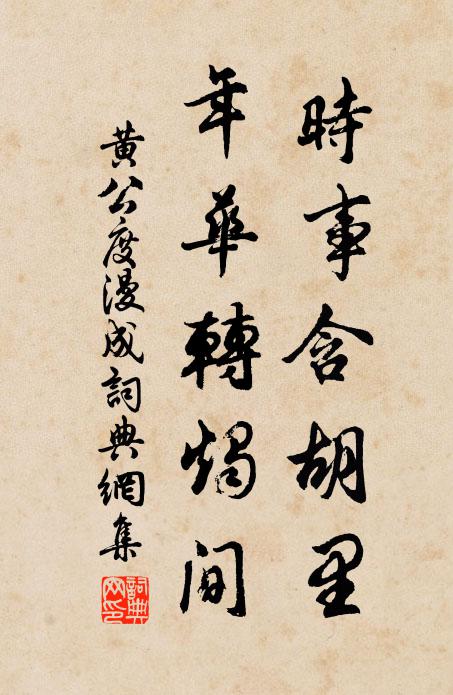 時事含胡里
年華轉燭間
黃公度漫成詞典網集
詞典网印